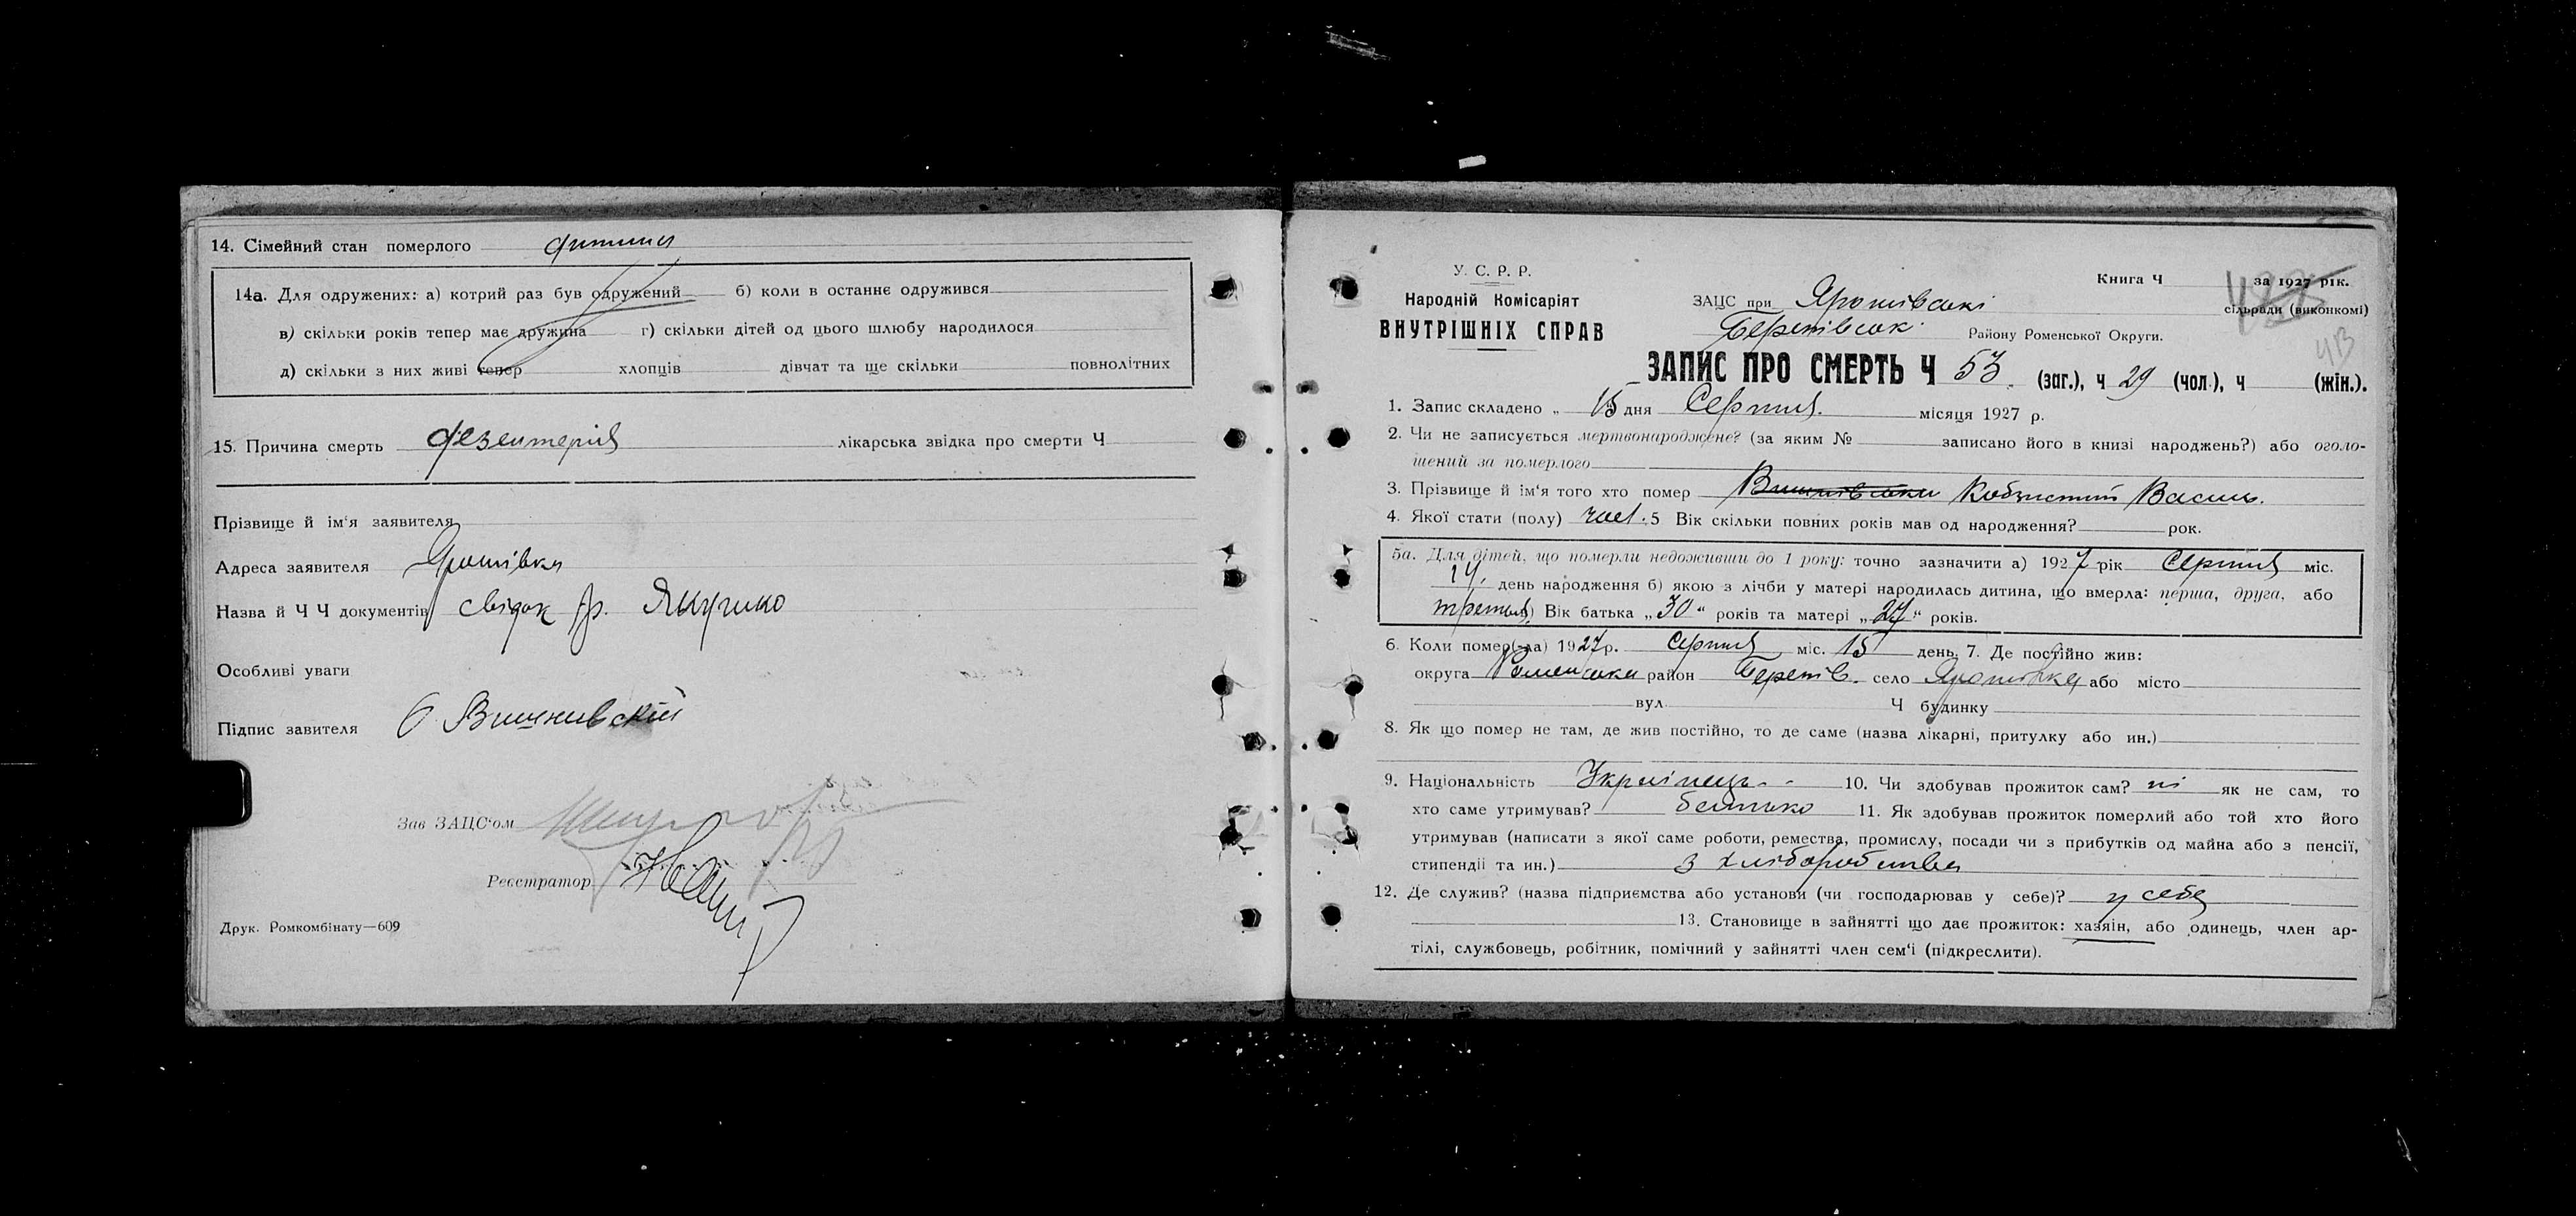 14. Сімейний стан померлого дитина
14а. Для одружених: а) котрий раз був одружений б) коли в останнє одружився
в) скільки років тепер має дружина г) скільки дітей од цього шлюбу народилося
д) скільки з них живі тепер хлопців дівчат та ще скільки повнолітних
15. Причина смерть дезентерія лікарська звідка про смерти Ч
Прізвище й ім'я заявителя
Адреса заявителя Ярошівка
Назва й Ч Ч документів свідок гр. Якушко
Особливі уваги
Підпис завителя Вишнивский
Зав ЗАЦС'ом
Реєстратор
Друк. Ромкомбінату—609
У. С. Р. Р.
Народній Комісаріят
ВНУТРІШНІХ СПРАВ
Книга Ч за 1927 рік.
ЗАЦС при Ярошівські сільради (виконкомі)
Перепівськ. Району Роменської Округи.
ЗАПИС ПРО СМЕРТЬ Ч 53. (заг.), ч 29 (чол.), ч (жін.).
1. Запис складено „ 15 дня Серпня. місяця 1927 р.
2. Чи не записується мертвонароджене? (за яким № записано його в книзі народжень?) або оголо-
шений за померлого
3. Прізвище й ім'я того хто помер Василь.
4. Якої стати (полу) чол. 5 Вік скільки повних років мав од народження? рок.
5а. Для дітей, що померли недоживши до 1 року: точно зазначити а) 1927 рік Серпня міс.
14. день народження б) якою з лічби у матері народилась дитина, що вмерла: перша, друга, або
третя) Вік батька „30“ років та матері „27“ років.
6. Коли помер(-ла) 1927р. Серпня міс. 15 день. 7. Де постійно жив:
округа Роменська район село Ярошівка або місто
вул. Ч будинку
8. Як що помер не там, де жив постійно, то де саме (назва лікарні, притулку або ин.)
9. Національність Українець 10. Чи здобував прожиток сам? ні як не сам, то
хто саме утримував? батько 11. Як здобував прожиток померлий або той хто його
утримував (написати з якої саме роботи, ремества, промислу, посади чи з прибутків од майна або з пенсії,
стипендії та ин.) з хліборобства
12. Де служив? (назва підприємства або установи (чи господарював у себе)? у себе
13. Становище в зайнятті що дає прожиток: хазяін, або одинець, член ар-
тілі, службовець, робітник, помічний у зайнятті член сем'і (підкреслити).